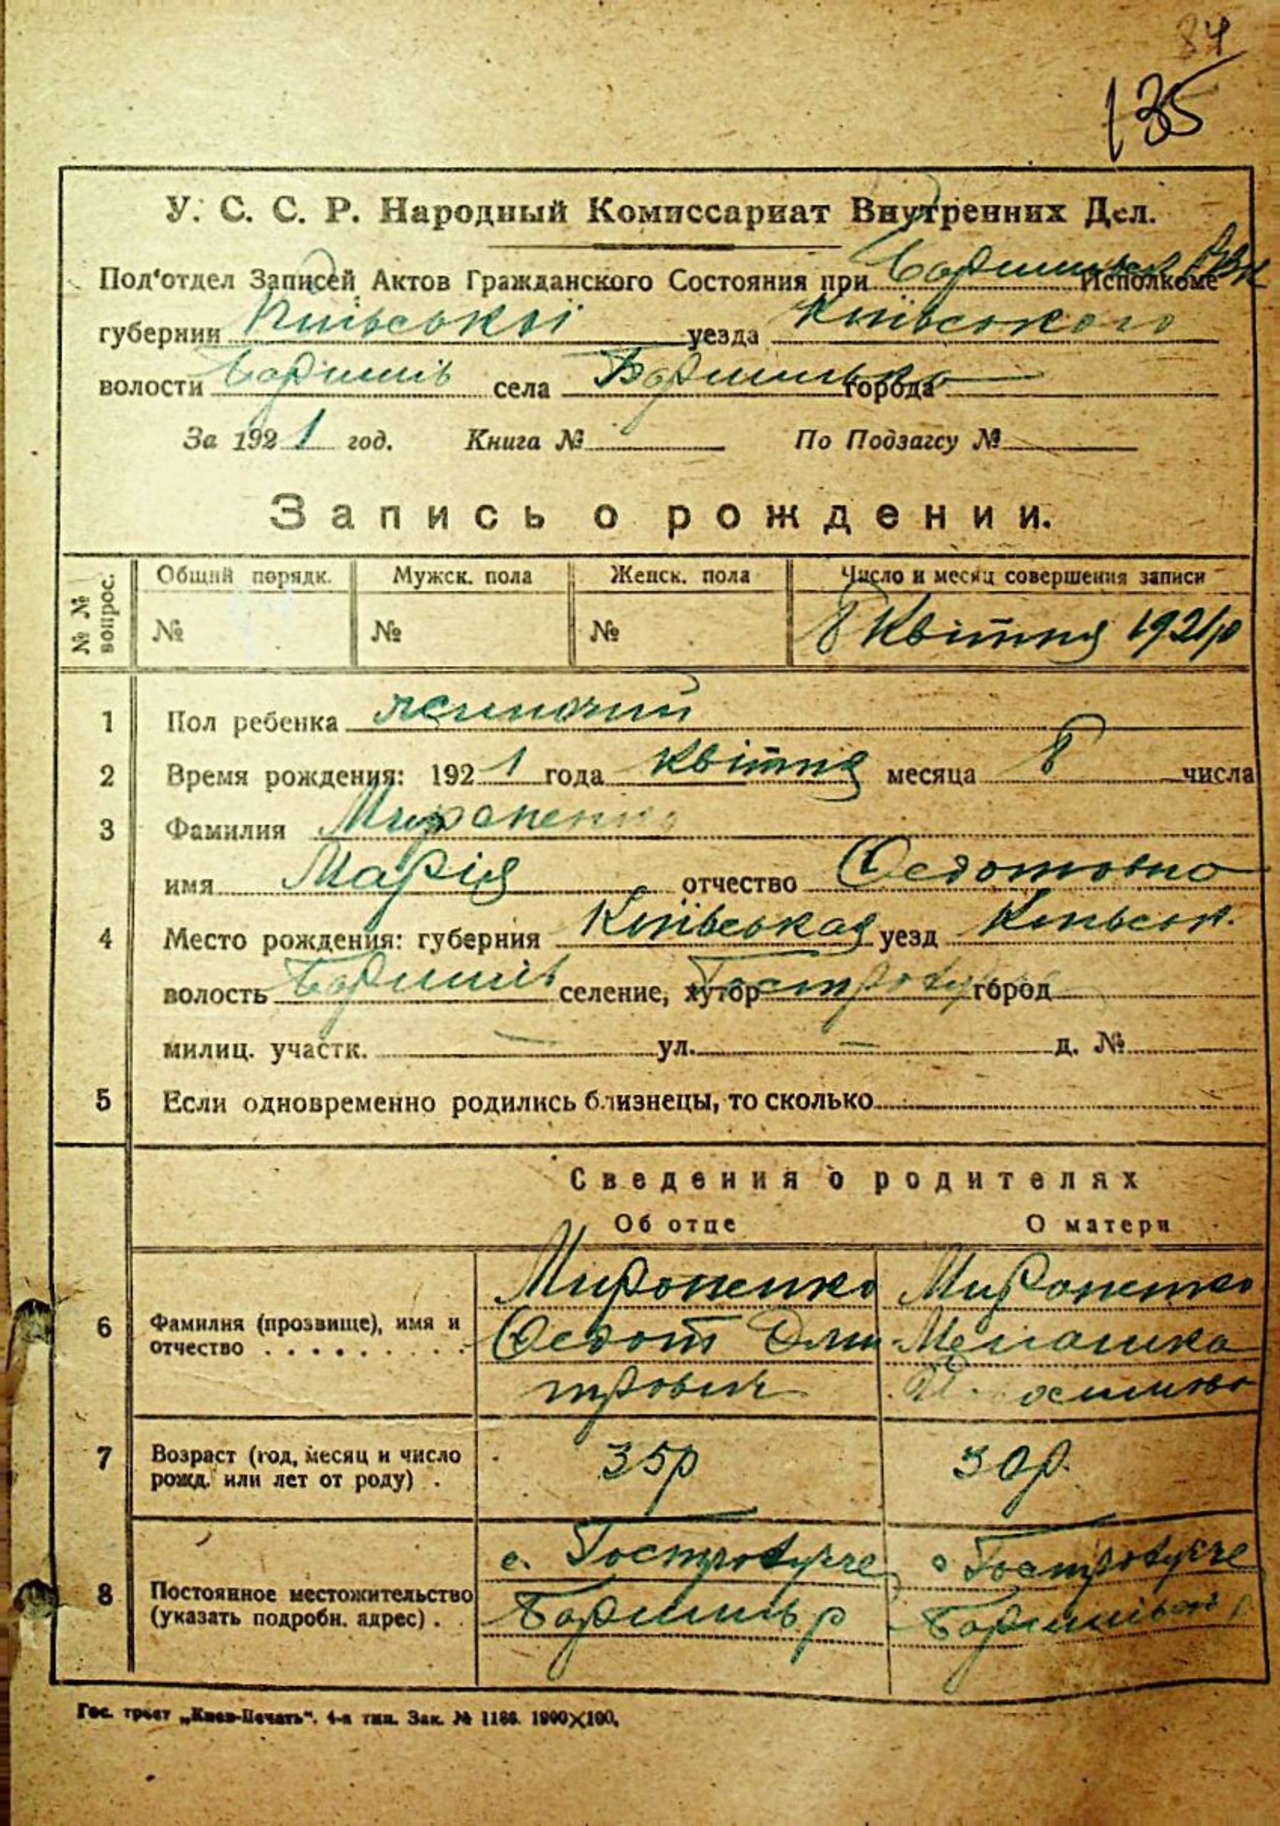 84
135
У. С. С. Р. Народный Комиссариат Внутренних Дел.
Под'отдел Записей Актов Гражданского Состояния при Исполкоме
губернии Київської уезда Київського
волости Баришів села города
За 1921 год. Книга № По Подзагсу №
Запись о рождении.
№ № вопрос. Общий порядк. Мужск. пола Женск. пола Число и месяц совершения записи
№ № № 8 Квітня 1921р
1 Пол ребенка жіночий
2 Время рождения: 1921 года квітня месяца 8 числа
3 Фамилия Мироненко
имя Марія отчество Федотовна
4 Место рождения: губерния Київськая уезд Київськ.
волость Баришів селение, хутор город
милиц. участк. — ул. — д. №
5 Если одновременно родились близнецы, то сколько
Сведения о родителях
Об отце О матери
6 Фамилия (прозвище), имя и отчество Мироненко Федот Дмитрович Мироненко Меланка
7 Возраст (год, месяц и число рожд. или лет от роду) 35р 30р.
8 Постоянное местожительство (указать подробн. адрес) с. Гостролуччє Баришів р с Гостролуччє
Гос. трест „Киев-Печать". 4-я тип. Зак. № 1186. 1900×100.